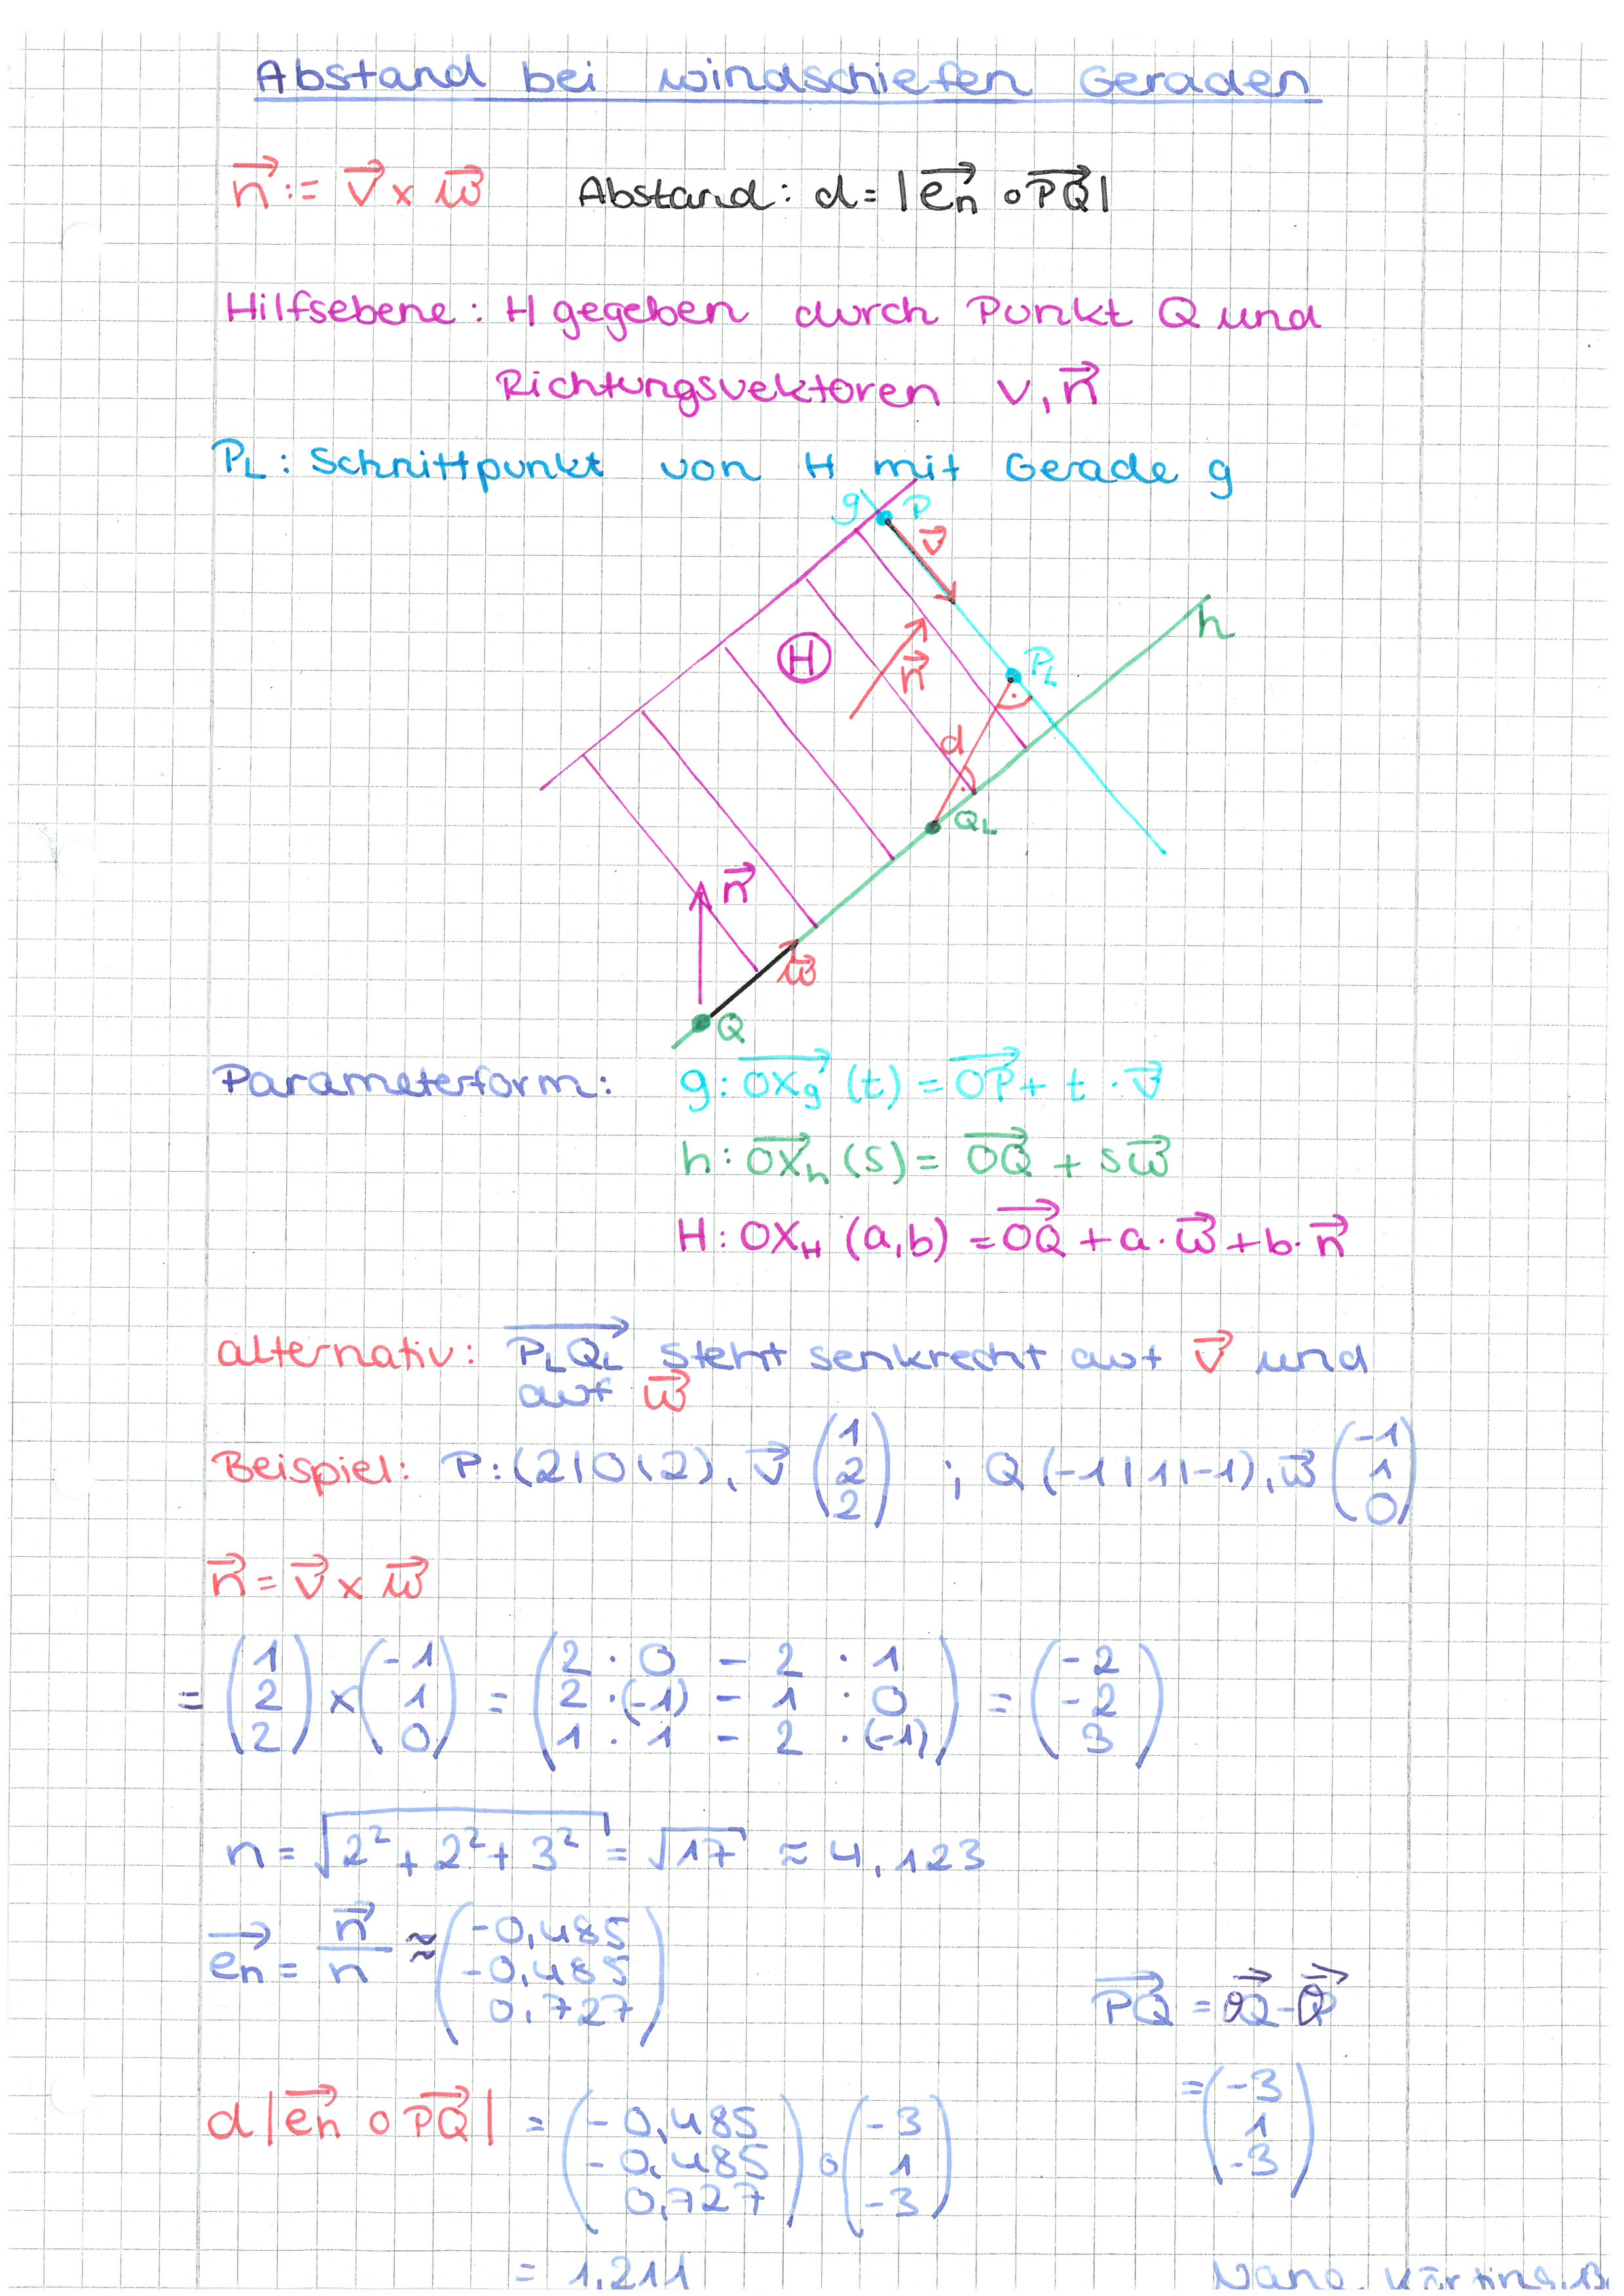 Abstand bei windschiefen Geraden
n⃗ := v⃗ × w⃗ Abstand: d = |e⃗n ∘ P⃗Q⃗|
Hilfsebene: H gegeben durch Punkt Q und
Richtungsvektoren v, n⃗
PL: Schnittpunkt von H mit Gerade g
g P
v⃗
h
H
n⃗
PL
d
QL
n⃗
w⃗
Q
Parameterform: g: O⃗X⃗g (t) = O⃗P⃗ + t · v⃗
h: O⃗X⃗h (s) = O⃗Q⃗ + s w⃗
H: OXH (a,b) = O⃗Q⃗ + a · w⃗ + b · n⃗
alternativ: P⃗LQ⃗L steht senkrecht auf v⃗ und
auf w⃗
Beispiel: P: (2|0|2), v⃗ (1 2 2) ; Q (-1|1|-1), w⃗ (-1 1 0)
n⃗ = v⃗ × w⃗
= (1 2 2) × (-1 1 0) = (2 · 0 - 2 · 1 2 · (-1) - 1 · 0 1 · 1 - 2 · (-1)) = (-2 -2 3)
n = √(2² + 2² + 3²) = √17 ≈ 4,123
e⃗n = n⃗/n ≈ (-0,485 -0,485 0,727)
P⃗Q⃗ = O⃗Q⃗ - O⃗P⃗
= (-3 1 -3)
d |e⃗n ∘ P⃗Q⃗| = (-0,485 -0,485 0,727) ∘ (-3 1 -3)
= 1,211